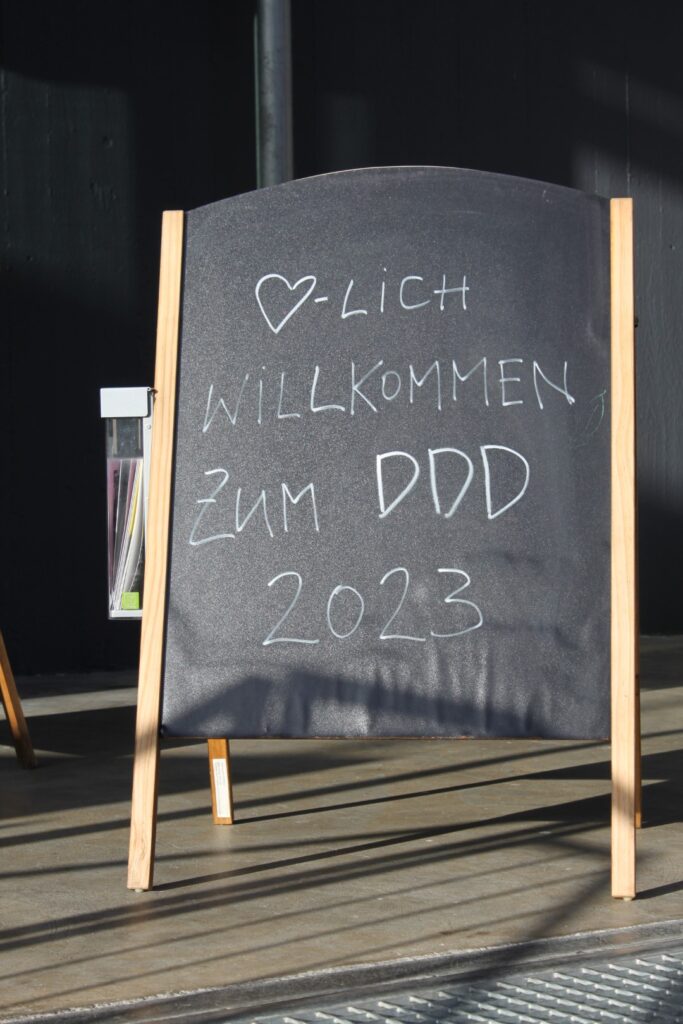 ♡-LiCH
WiLLKOMMEN
ZUM DDD
2023